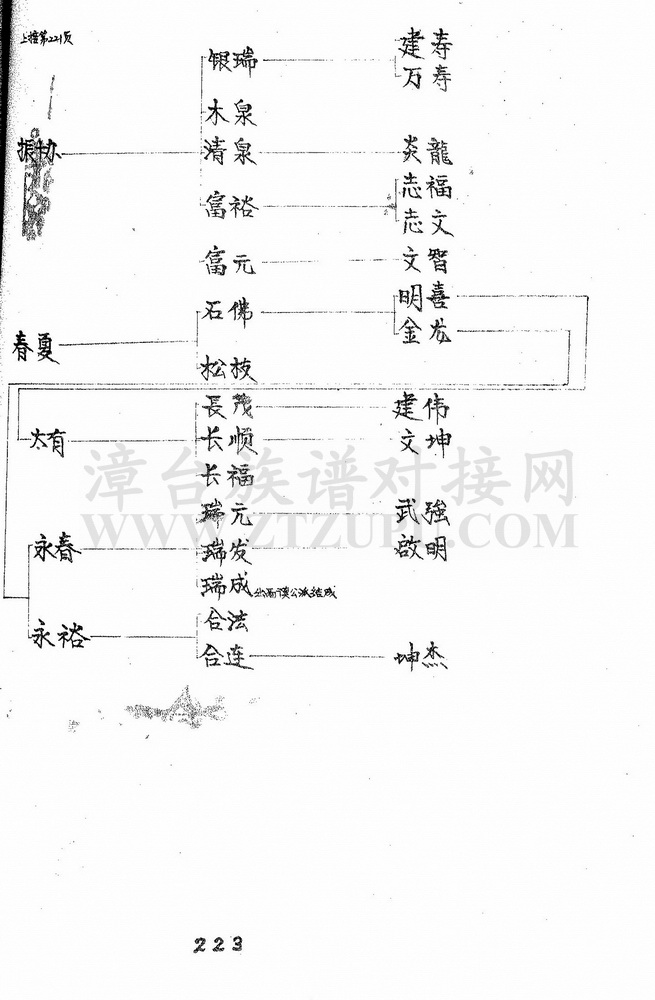 上接第221页
银瑞 建寿
万寿
木泉
振协 清泉 炎龍
富裕 志福
志文
富元 文智
石佛 明喜
春夏 金龙
松枝
長茂 建伟
太有 长顺 文坤
长福
漳台族谱对接网
WWW.ZTZUPU.COM
瑞元 武強
永春 瑞发 啟明
瑞成
永裕 合法
合连 坤杰
223